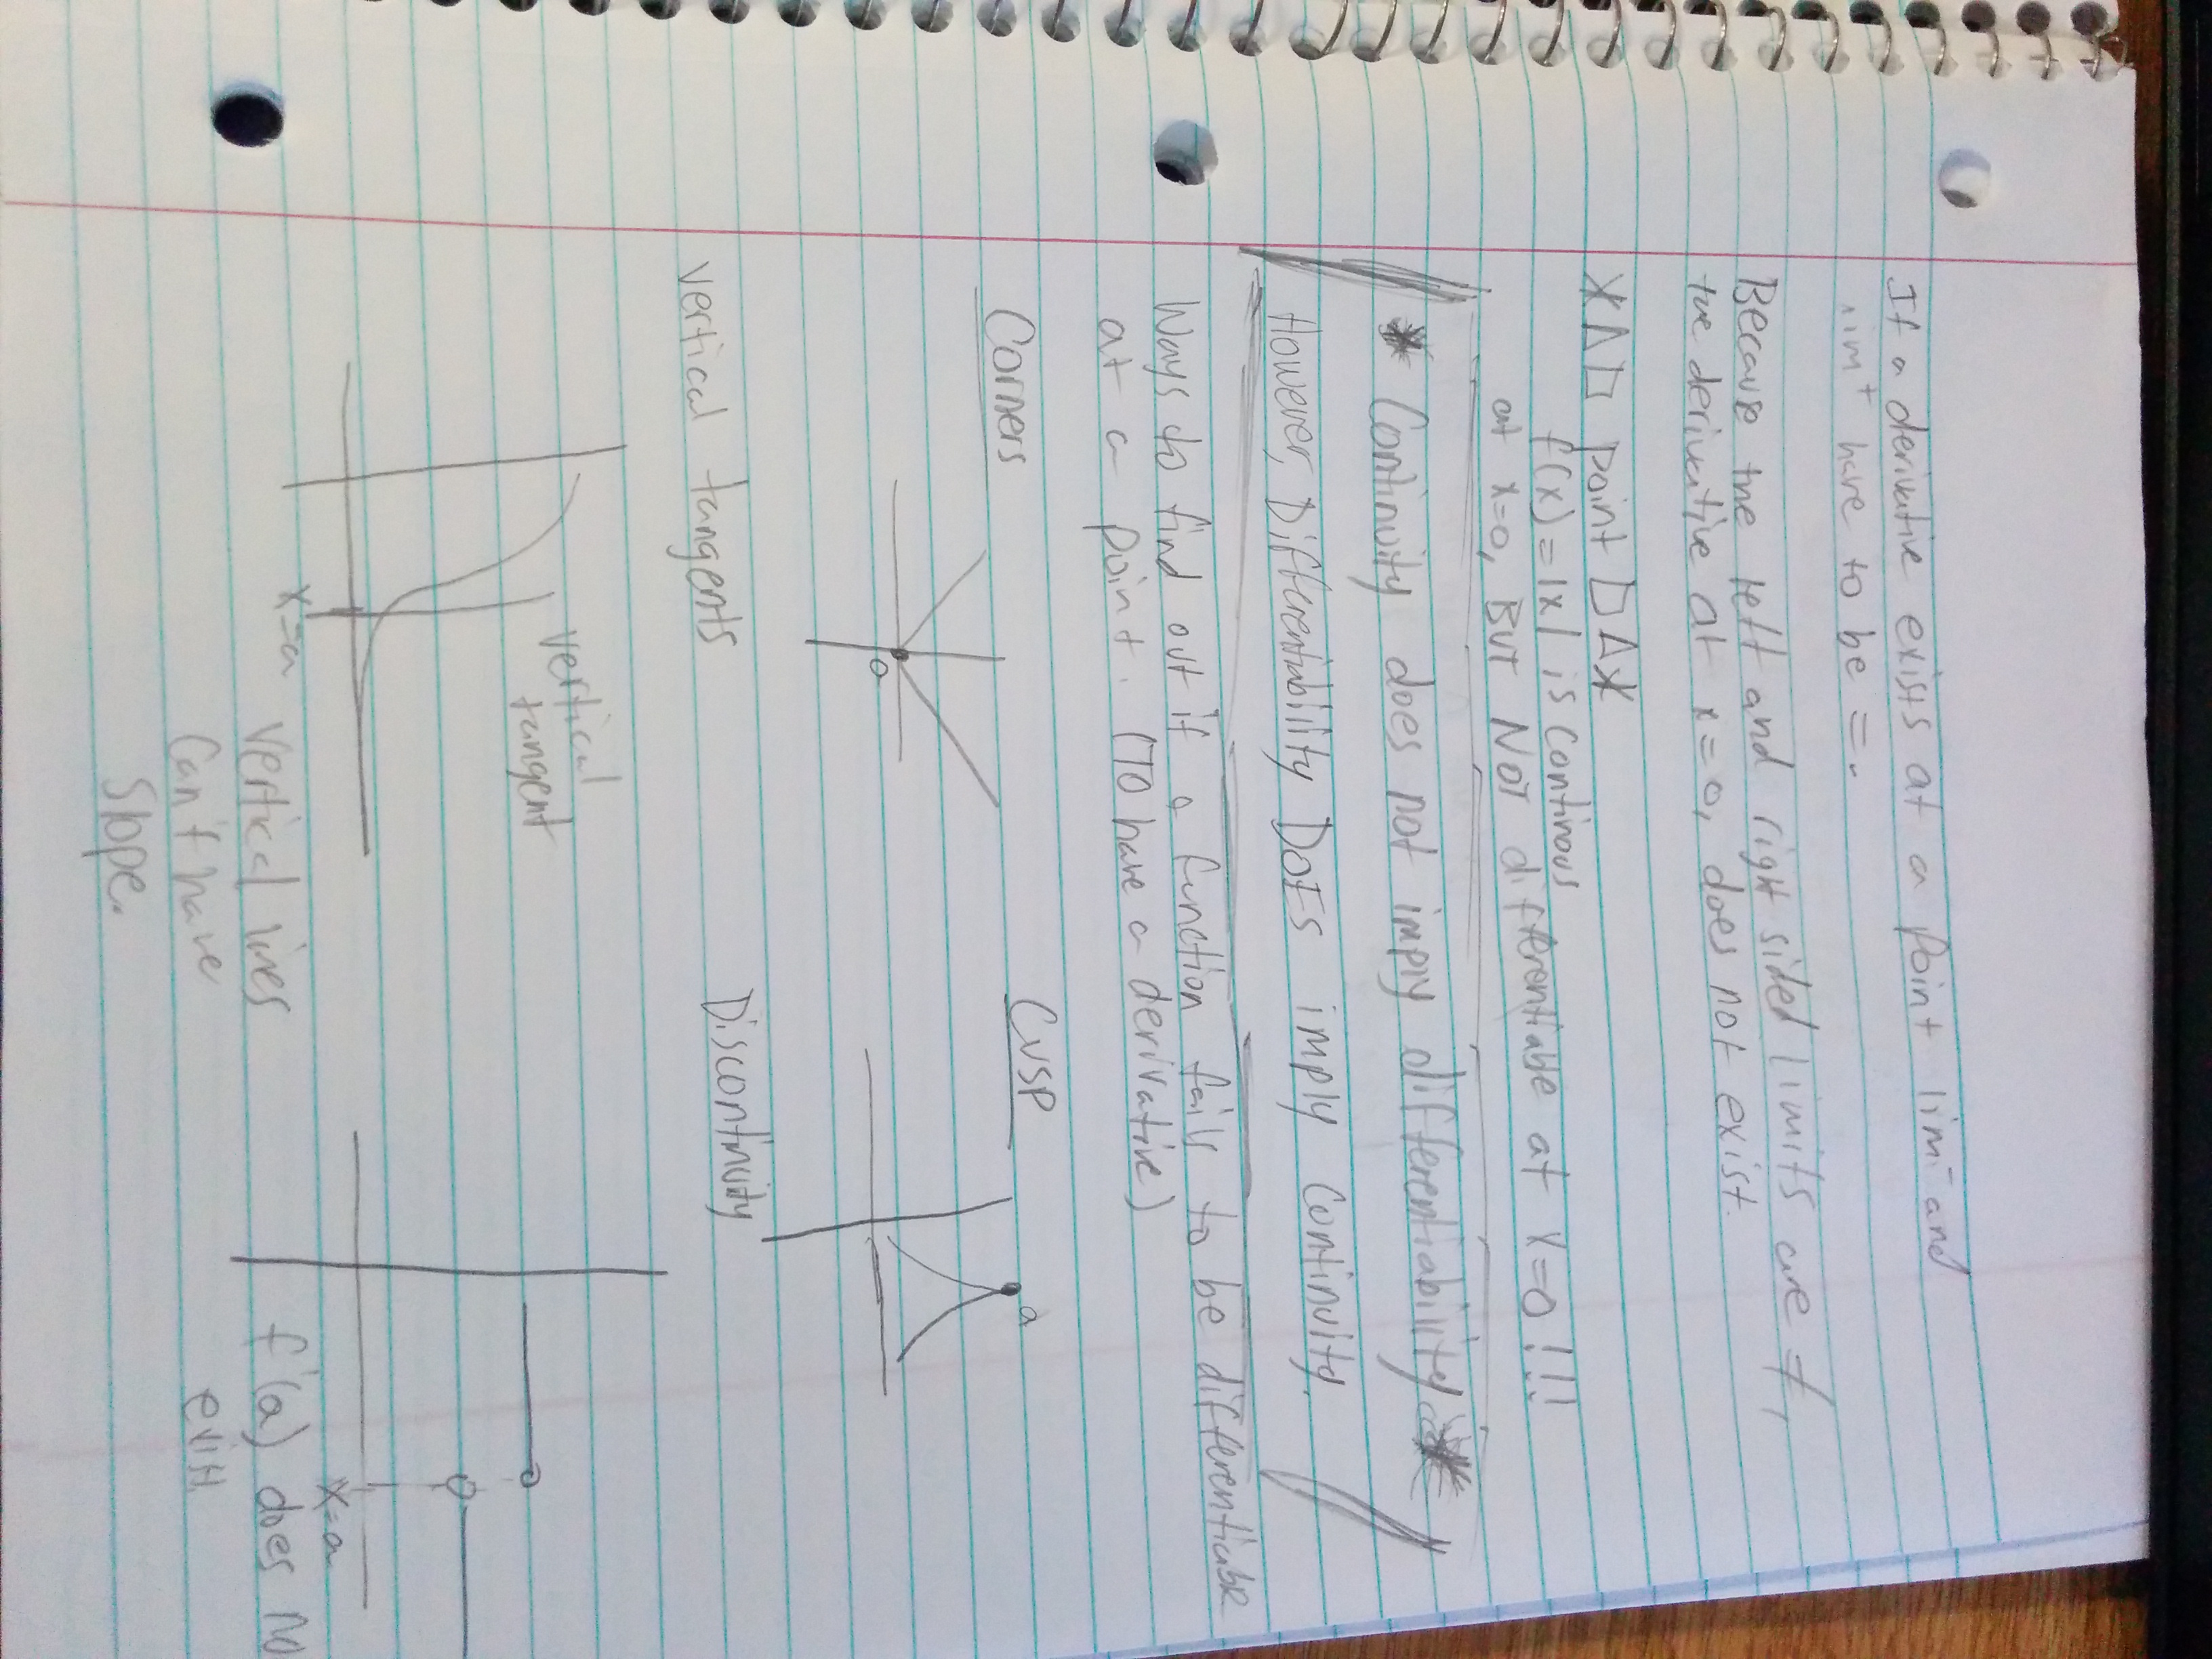 If a derivative exists at a point lim⁻ and
lim⁺ have to be =.
Because the left and right sided limits are ≠,
the derivative at x=0, does not exist.
point
f(x)=|x| is continous
at x=0, BUT NOT differentiable at x=0!!!
* Continuity does not imply differentiability *
However, Differentiability DOES imply Continuity.
Ways to find out if a function fails to be differentiable
at a point. (To have a derivative)
Corners
Cusp
0
a
vertical tangents
Discontinuity
vertical
tangent
x=a
x=a
vertical lines
can't have
slope.
f'(a) does no
exist